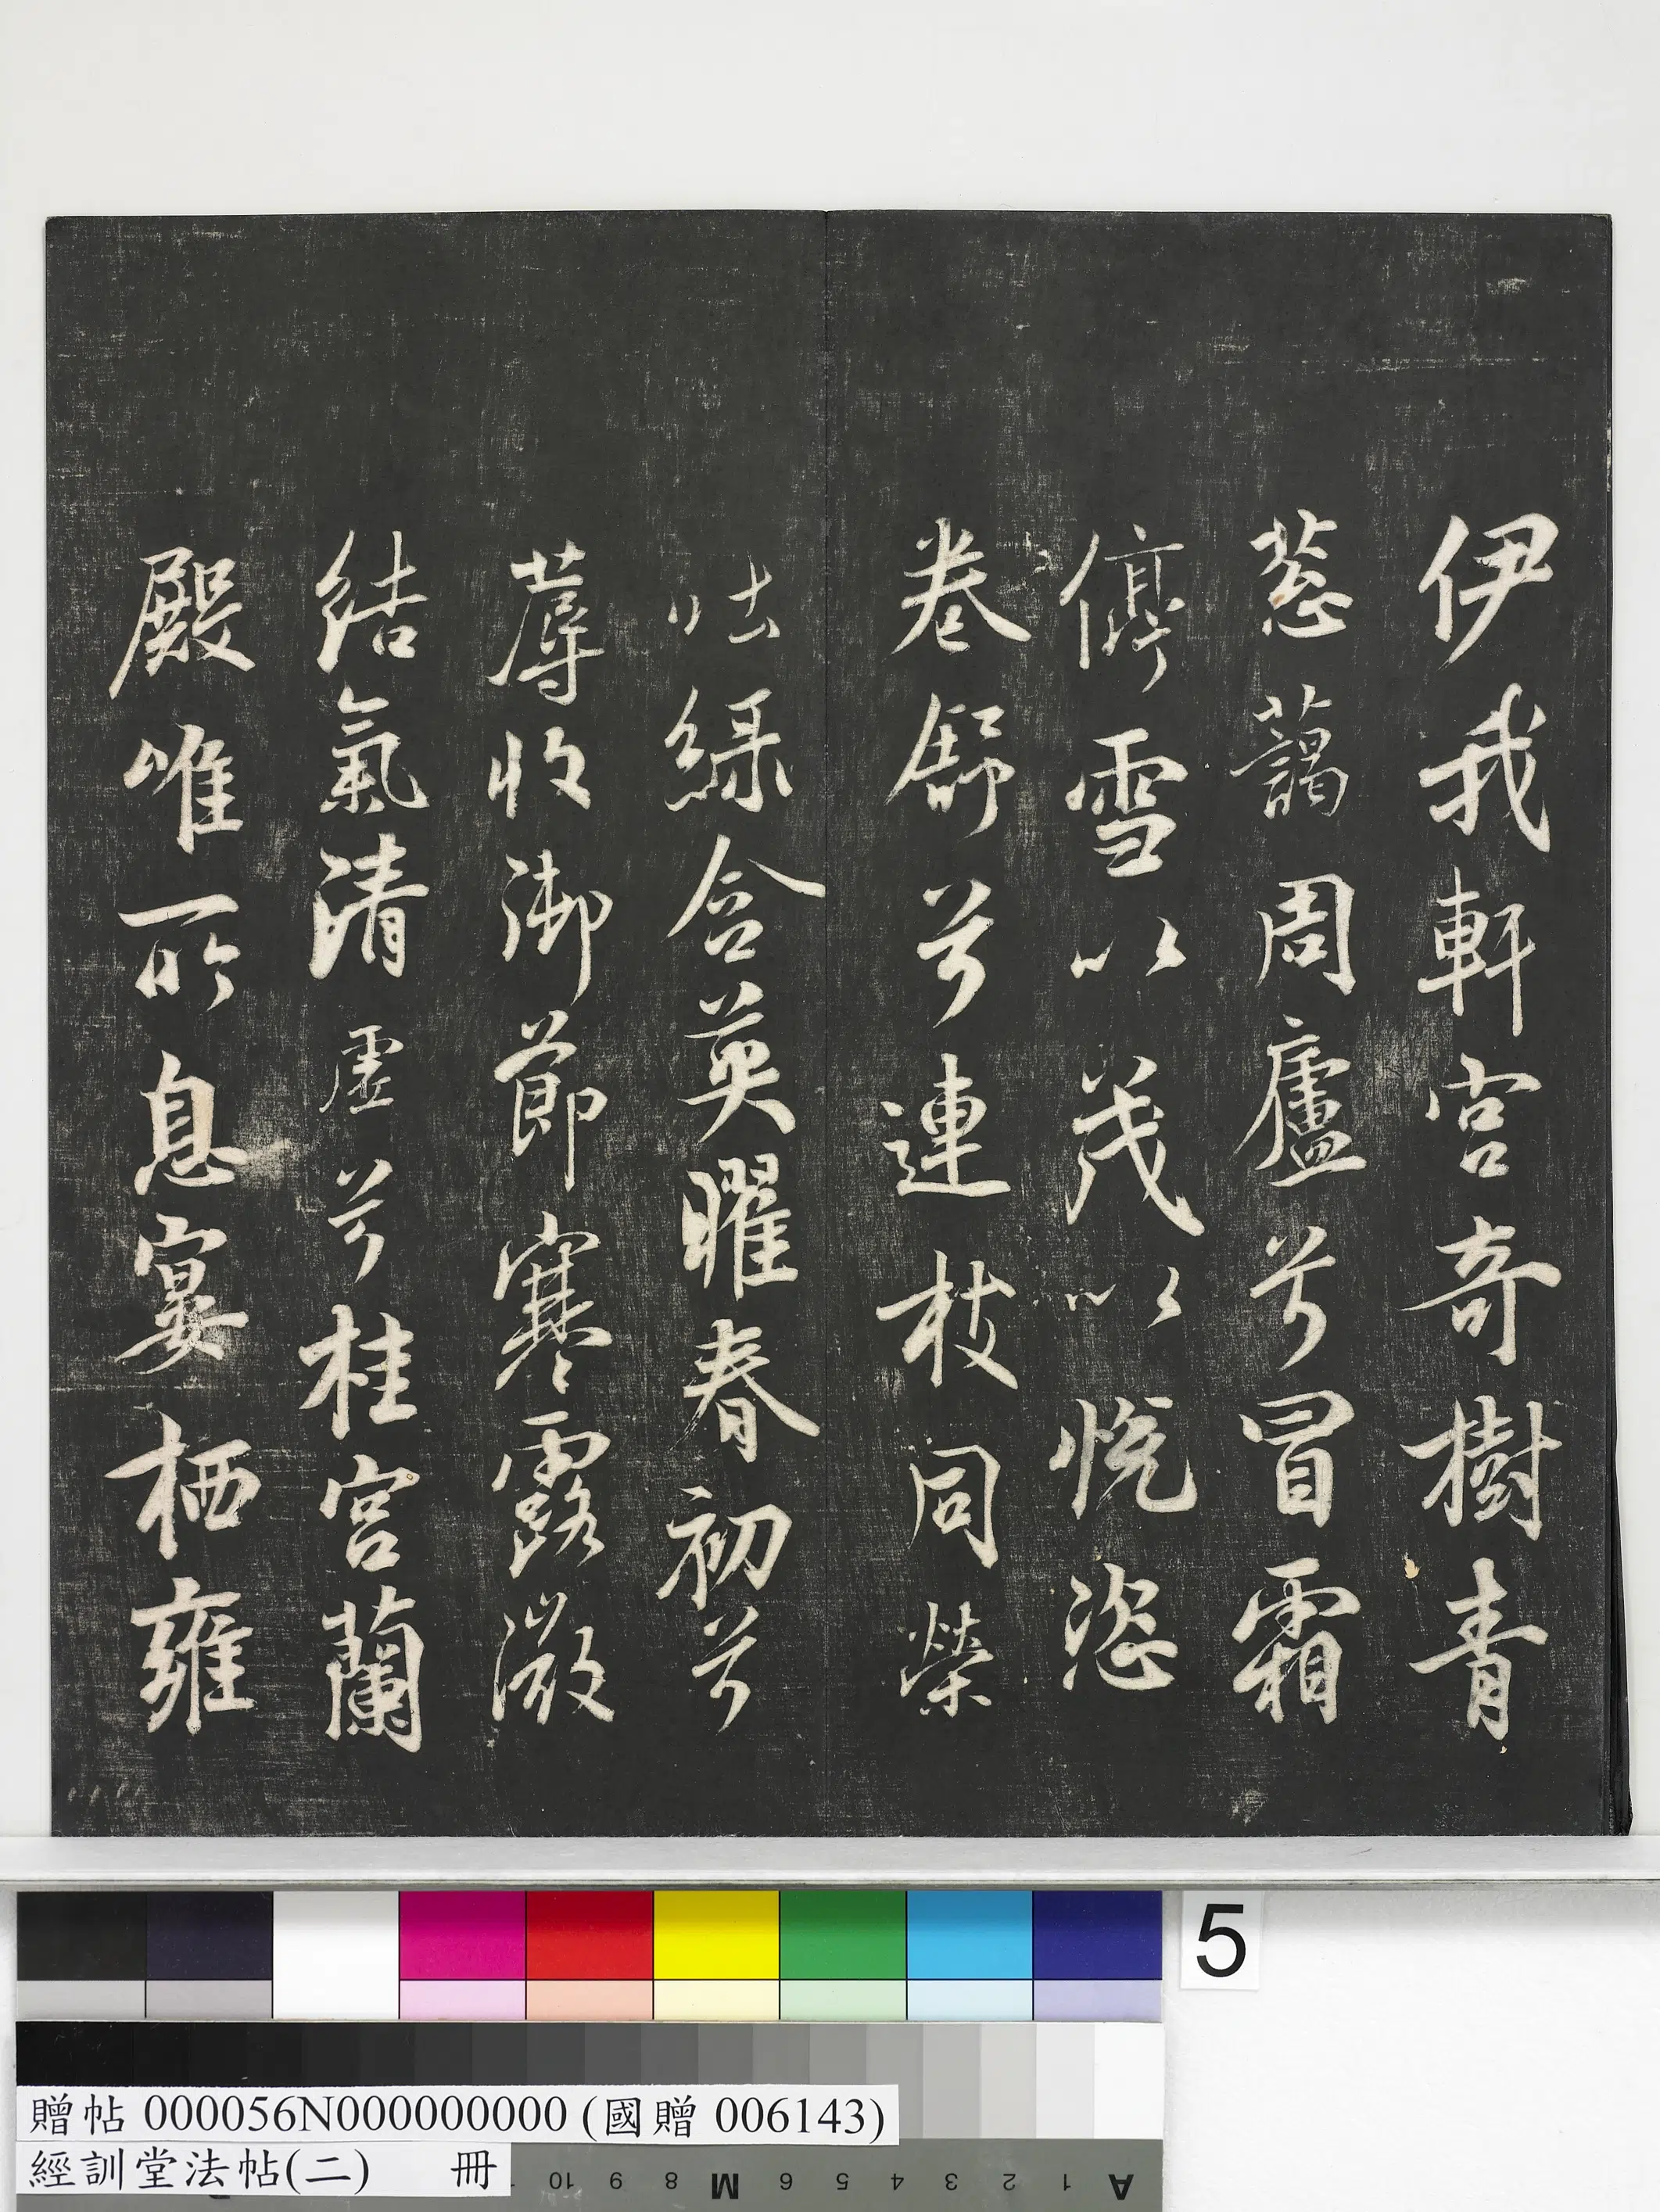 伊我軒宮奇樹青
葱藹周廬兮冒霜
停雪以茂以悅恣
卷舒兮連枝同榮
吐綠含英曜春初兮
蓐收御節寒露微
結氣清虛兮桂宮蘭
殿唯所息宴栖雍
5
贈帖 000056N000000000 (國贈 006143)
經訓堂法帖(二) 冊
A 1 2 3 4 5 6 M 8 9 10